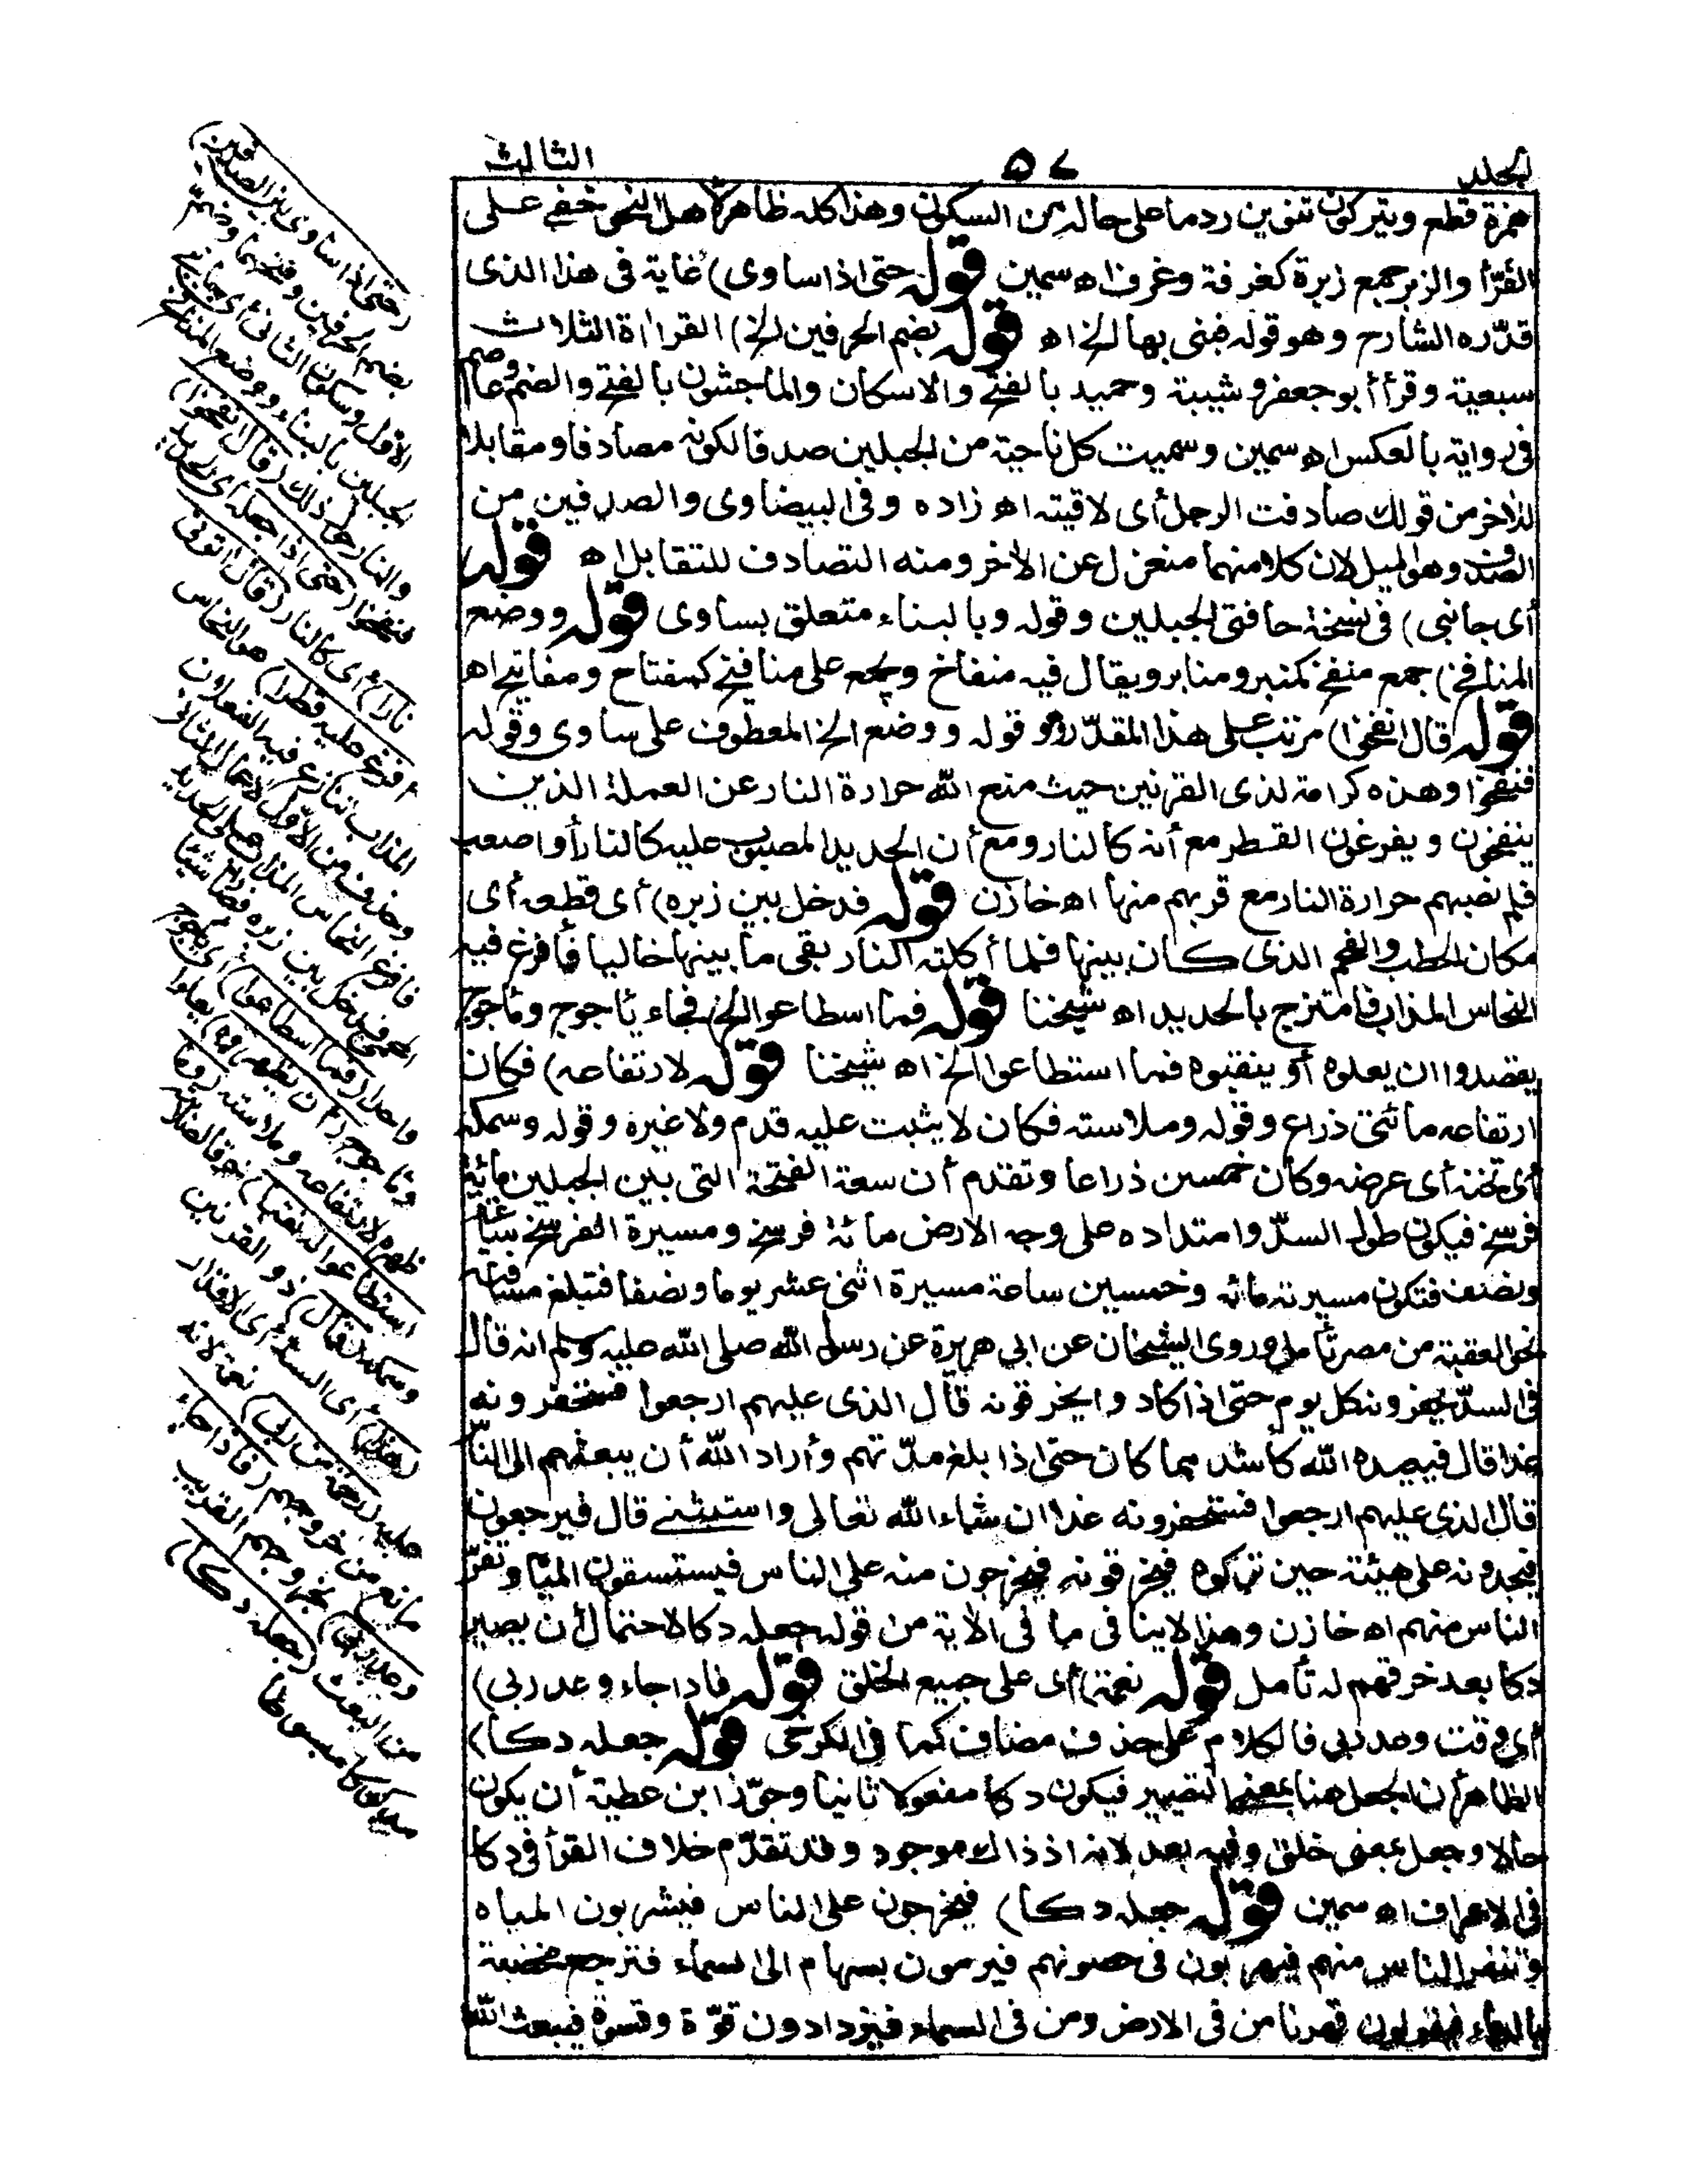 المجلد ٥٧ الثالث
همزة قطع ويتركون تنوين ردما على حاله من السكون وهذا كله ظاهر لأهل النحو خفي على
القرّاء والزبر جمع زبرة كغرفة وغرف اه سمين قوله حتى اذا ساوى) غاية فى هذا الذى
قدّره الشارح وهو قوله فبنى بها الخ اه قوله بضم الحرفين الخ) القراآة الثلاث
سبعية وقرأ أبو جعفر وشيبة وحميد بالفتح والاسكان والماجشون بالفتح والضم وعاصم
فى رواية بالعكس اه سمين وسميت كل ناحية من الجبلين صدفا لكونه مصادفا ومقابلا
للآخر من قولك صادفت الرجل أى لاقيته اه زاده وفى البيضاوى والصدفين من
الصدف وهو الميل لان كلا منهما منعزل عن الآخر ومنه التصادف للتقابل اه قوله
أى جانبى) فى نسخة حافتى الجبلين وقوله وبالبناء متعلق بساوى قوله ووضع
المنافخ) جمع منفخ كمنبر ومنابر ويقال فيه منفاخ ويجمع على منافيخ كمفتاح ومفاتيح اه
قوله قال انفخوا) مرتب على هذا المقدّر وهو قوله ووضع الخ المعطوف على ساوى وقوله
فنفخوا وهذه كرامة لذى القرنين حيث منع الله حرارة النار عن العملة الذين
ينفخون ويفرغون القطر مع أنه كالنار ومع أن الحديد المصبوب عليه كالنار أو اصعب
فلم تصبهم حرارة النار مع قربهم منها اه خازن قوله فدخل بين زبره) أى قطعه أى
مكان الحطب والفحم الذى كان بينها فلما أكلته النار بقى ما بينها خاليا فأفرغ فيه
النحاس المذاب فامتزج بالحديد اه شيخنا قوله فما اسطاعوا الخ) فجاء يأجوج ومأجوج
يقصدوا ان يعلوه أو ينقبوه فما استطاعوا الخ اه شيخنا قوله لارتفاعه) فكان
ارتفاعه مائتى ذراع وقوله وملاسته فكان لا يثبت عليه قدم ولا غيره وقوله وسمكه
أى ثخنه أى عرضه وكان خمسين ذراعا وتقدم أن سعة الفتحة التى بين الجبلين مائة
فرسخ فيكون طول السدّ وامتداده على وجه الارض مائة فرسخ ومسيرة الفرسخ ساعة
ونصف فتكون مسيرته مائه وخمسين ساعة مسيرة اثنى عشر يوما ونصفا فتبلغ مسافته
نحو العقبة من مصر تأمل وروى الشيخان عن ابي هريرة عن رسول الله صلى الله عليه وسلم انه قال
فى السدّ يحفرونه كل يوم حتى اذا كادوا يخرقونه قال الذى عليهم ارجعوا فستحفرونه
غدا قال فيعيده الله كأشد مما كان حتى اذا بلغ مدّتهم وأراد الله أن يبعثهم الى الناس
قال الذى عليهم ارجعوا فستحفرونه غدا ان شاء الله تعالى واستثنے قال فيرجعون
فيجدونه على هيئته حين تركوه فيخرقونه فيخرجون منه على الناس فيستسقون المياه وتفرّ
الناس منهم اه خازن وهذا لاينافى ما فى الآية من قوله جعله دكا لاحتمال أن يصير
دكا بعد خرقهم له تأمل قوله نعمة) أى على جميع الخلق قوله فاذا جاء وعد ربى)
أى وقت وعد ربى فالكلام على حذف مضاف كما فى الكرخى قوله جعله دكا)
الظاهر أن الجعل هنا بمعنى التصيير فيكون دكا مفعولا ثانيا وجوّز ابن عطية أن يكون
حالا وجعل بمعنى خلق وفيه بعد لانه اذ ذاك موجود وقد تقدّم خلاف القرأ فى دكا
فى الاعراف اه سمين قوله جعله دكا) فيخرجون على الناس فيشربون المياه
وتنفر الناس منهم فيهربون فى حصونهم فيرمون بسهام الى السماء فترجع مخضبة
بالدماء فيقولون قهرنا من فى الارض ومن فى السماء فيزدادون قوّة وقسوة فيبعث الله
(حتى اذا ساوى بين الصدفين)
بضم الحرفين وفتحهما وضمّ
الاوّل وسكون الثانى أى جانبى
الجبلين بالبناء ووضع المنافخ
والنار حول ذلك (قال انفخوا)
فنفخوا (حتى اذا جعله) أى الحديد
(نارا) أى كالنار (قال آتونى
أفرغ عليه قطرا) هو النحاس
المذاب تنازع فيه الفعلان
وحذف من الاوّل لاعمال الثانى
فأفرغ النحاس المذاب على الحديد
المحمى فدخل بين زبره فصارا شيئا
واحدا (فما اسطاعوا) أى يأجوج
ومأجوج (أن يظهروه) يعلوا
ظهره لارتفاعه وملاسته (وما
استطاعوا له نقبا) خرقا لصلابته
وسمكه (قال) ذو القرنين
(هذا) أى السدّ أى الاقدار
عليه (رحمة من ربى) نعمة لانه
مانع من خروجهم (فاذا جاء
وعد ربى) بخروجهم القريب
من البعث (جعله دكا)
مدكوكا مبسوطا